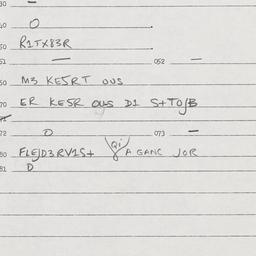 30 –
40 O
50 R1TX83R
51 — 052 —
60 M3 KE5RT OUS
70 ER KESR OUS D1 S+TO/B
72 O 073 —
80 FLEJD3RV1S+ Qi A GANC JOR
81 D